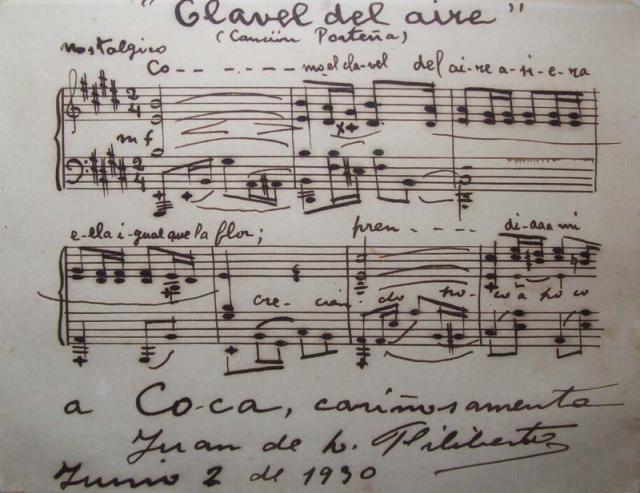 "Clavel del aire"
(Canción Porteña)
nostalgico
Co-- - ---- mo el cla-vel del ai-re a-si e-ra
2 4
m f
2 4
e-lla i-gual que la flor; pren - - - - di-aaa mi
cre- cien- do po- co a poco
a Co-ca, cariñosamente
Juan de D. Filiberto
Junio 2 de 1930